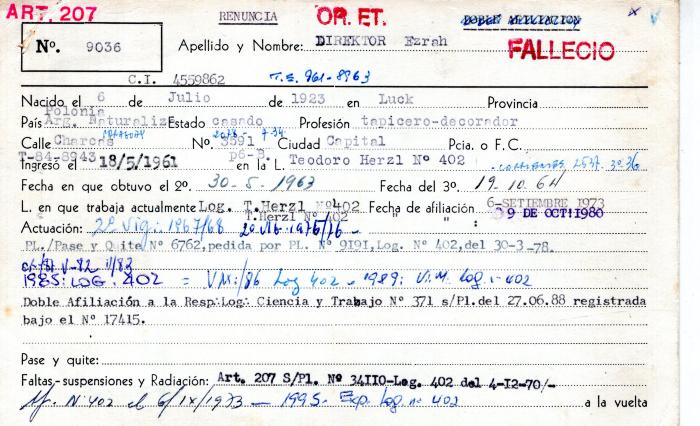 ART. 207 RENUNCIA OR. ET. DOBLE AFILIACION
Nº. 9036 Apellido y Nombre: DIREKTOR Ezrah FALLECIO
C.I. 4559862 T.E. 961-8963
Nacido el 6 de Julio de 1923 en Luck Provincia
Polonia
País Arg. Naturaliz Estado casado Profesión tapicero-decorador
Calle Charcas Nº. 3591 Ciudad Capital Pcia. o F.C.
T-84-8943 P6-B.
Ingresó el 18/5/1961 en la L. Teodoro Herzl Nº 402
Fecha en que obtuvo el 2º. 30-5-1963 Fecha del 3º. 19.10.64
L. en que trabaja actualmente Log. T.Herzl Nº 402 Fecha de afiliación 6-SETIEMBRE 1973
T.Herzl Nº 402 " " : 9 DE OCT! 1980
Actuación: 2º Vig: 1967/68 2º Vig-1975/76-
PL./Pase y Quite Nº 6762,pedida por PL. Nº 9191,Log. Nº 402,del 30-3-78.
V-82 V/83
1985: LOG. 402 = V.M:/86 Log 402 - 1989: V.M. Log. 402
Doble Afiliación a la Resp∴Log∴ Ciencia y Trabajo Nº 371 s/Pl.del 27.06.88 registrada
bajo el Nº 17415.
Pase y quite:
Faltas,-suspensiones y Radiación: Art. 207 S/Pl. Nº 34110-Log. 402 del 4-12-70/-
Nº 402 el 6/IX/1973 - 1995- Exp. Log. nº 402 a la vuelta